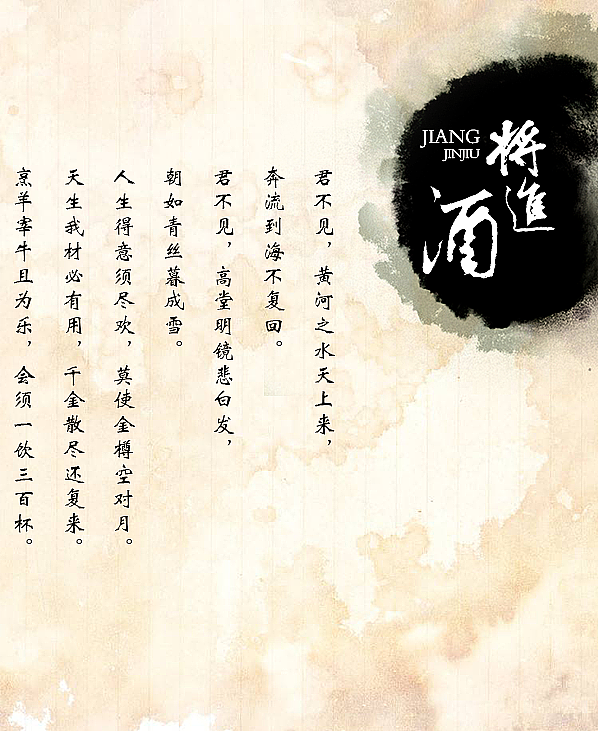 将進酒
JIANG
JINJIU
君不见，黄河之水天上来，
奔流到海不复回。
君不见，高堂明镜悲白发，
朝如青丝暮成雪。
人生得意须尽欢，莫使金樽空对月。
天生我材必有用，千金散尽还复来。
烹羊宰牛且为乐，会须一饮三百杯。